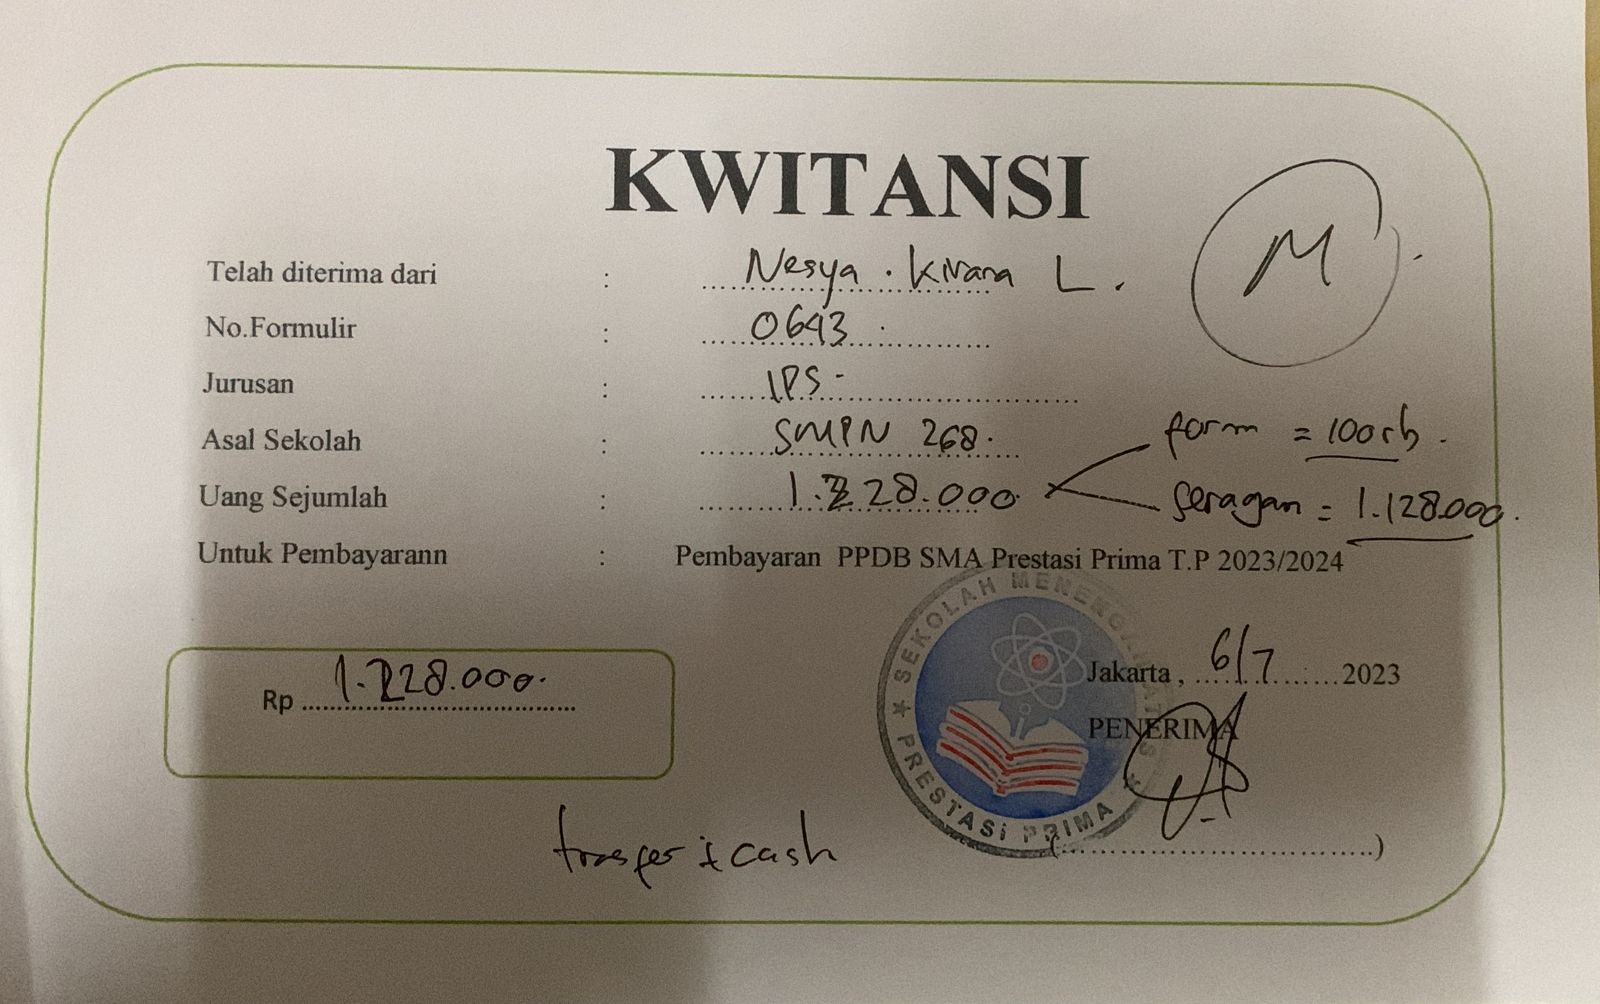 KWITANSI
M
Telah diterima dari : Nesya . Kirana L .
No.Formulir : 0643
Jurusan : IPS -
Asal Sekolah : SMPN 268.
form = 100rb .
Uang Sejumlah : 1.228.000
seragan = 1.128.000.
Untuk Pembayarann : Pembayaran PPDB SMA Prestasi Prima T.P 2023/2024
SEKOLAH MENENGAH ATAS
PRESTASI PRIMA
Rp 1.228.000.
Jakarta , 6/7 2023
PENERIMA
trasfer & cash
(..............................)